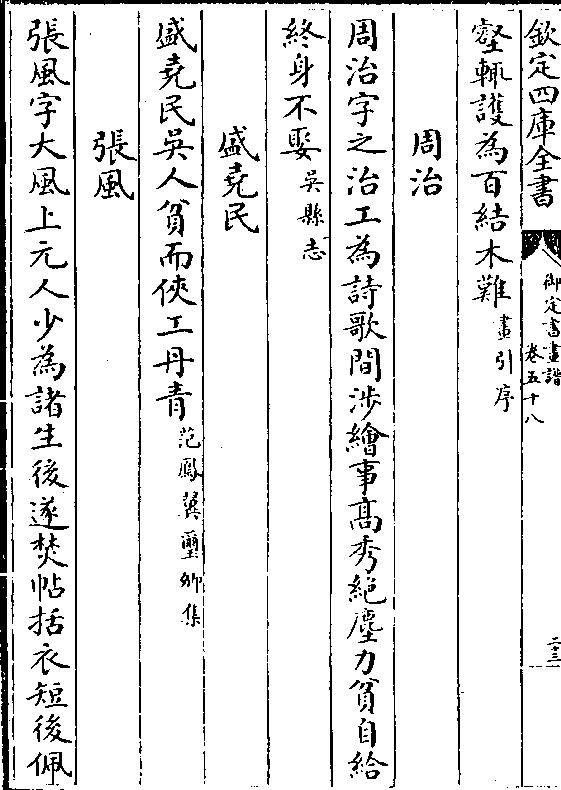 欽定四庫全書
御定書畫譜
卷五十八
二十三
壑輒護為百結木難畫引序
周治
周治字之治工為詩歌間涉繪事髙秀絶塵力貧自給
終身不娶吳縣志
盛堯民
盛堯民吳人貧而俠工丹青范鳳翼璽卿集
張風
張風字大風上元人少為諸生後遂焚帖括衣短後佩